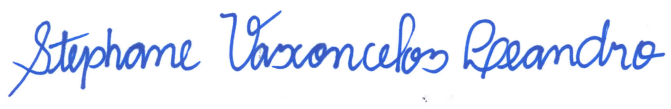 Stephane Vasconcelos Leandro